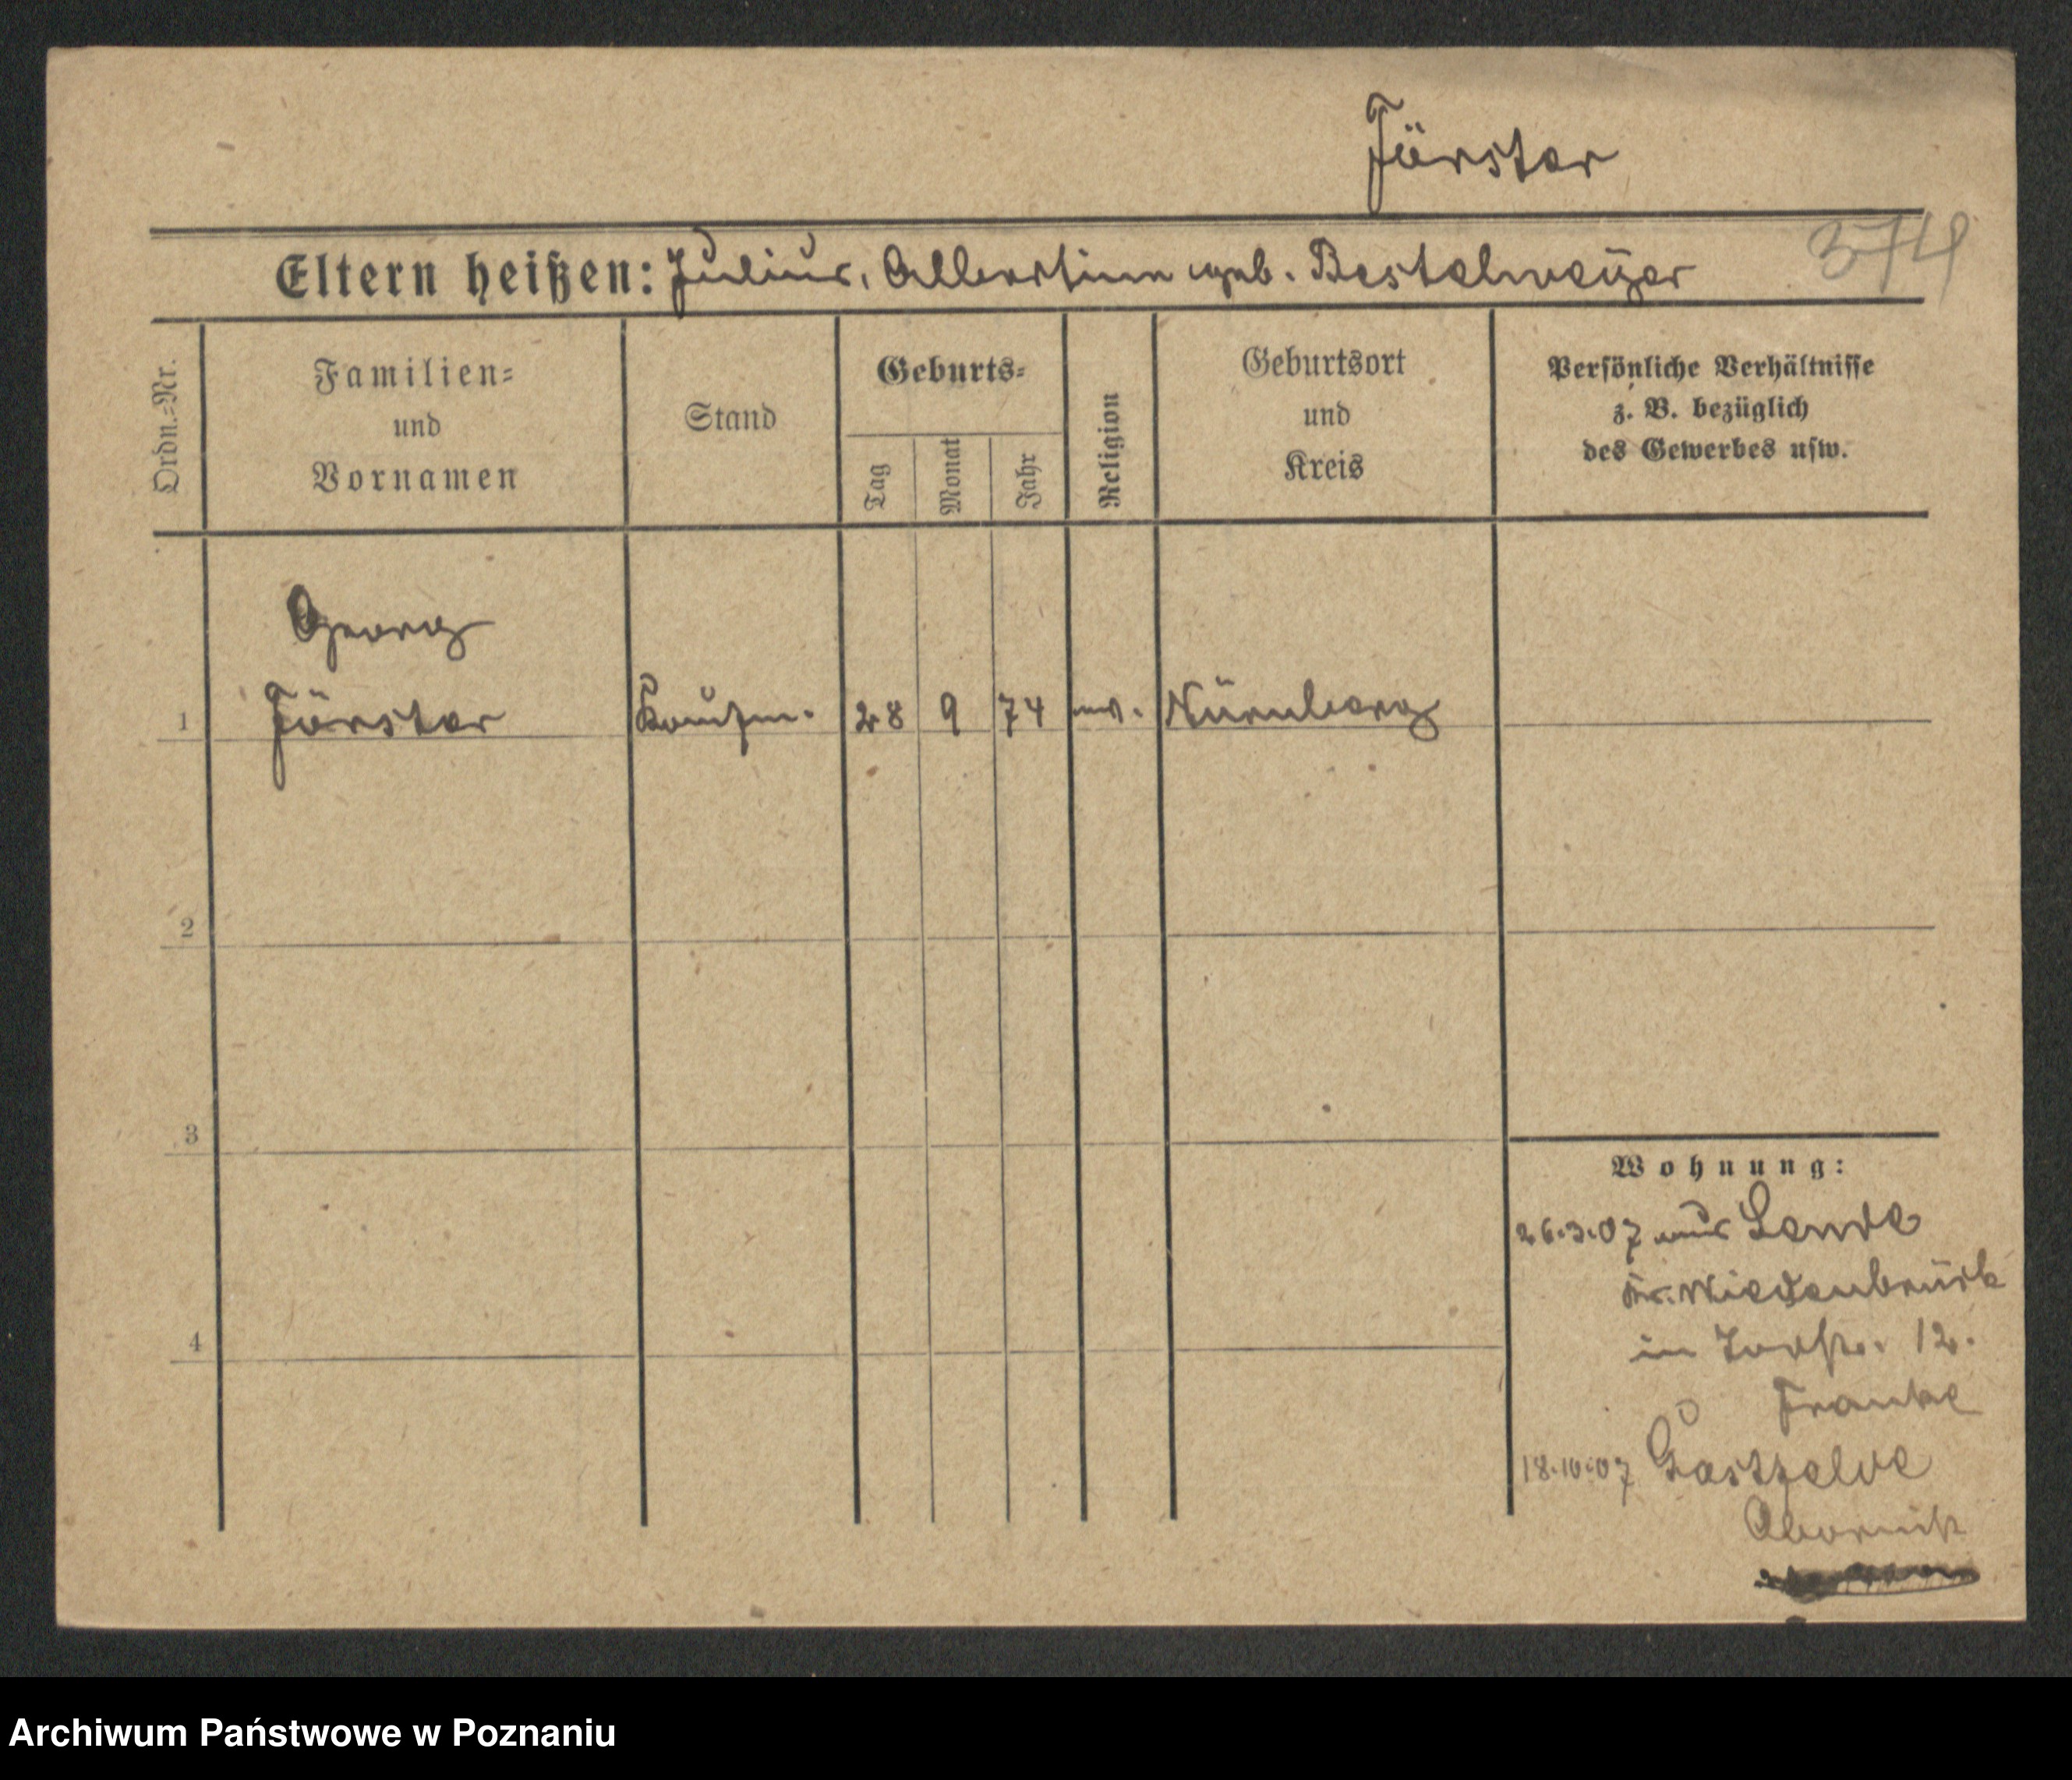 Förster
574
Eltern heißen: Julius, Albertine geb. Bestelmeyer
Ordn.=Nr.
Familien=
und
Vornamen
Stand
Geburts=
Tag
Monat
Jahr
Religion
Geburtsort
und
Kreis
Persönliche Verhältnisse
z. B. bezüglich
des Gewerbes usw.
Georg
1 Förster Kaufm. 28 9 74 ev. Nürnberg
2
3
4
Wohnung:
26.3.07 aus
Kr. Wiedenbrück
in 12.
Franke
18.10.07
Obornik
Archiwum Państwowe w Poznaniu